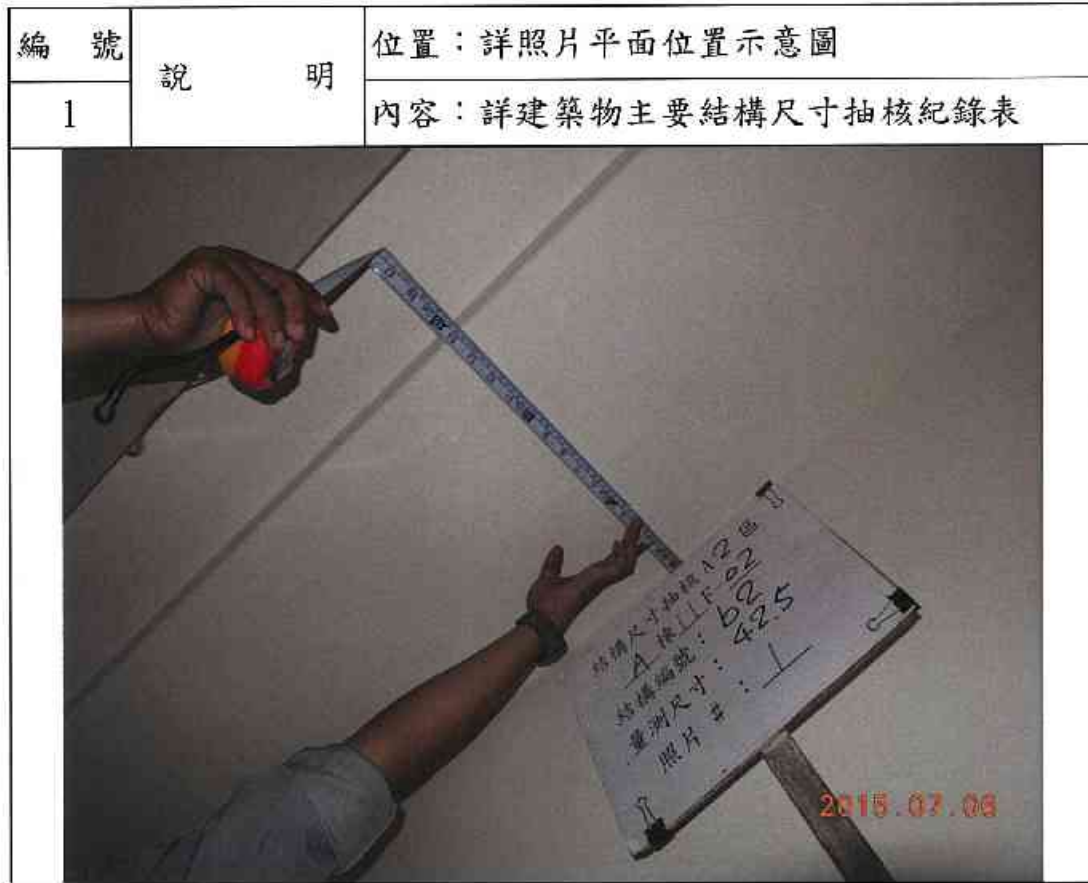 編 號
說 明
位置：詳照片平面位置示意圖
1
內容：詳建築物主要結構尺寸抽核紀錄表
結構尺寸抽核 A2 區
A 棟 11 F 02
結構編號： b2
量測尺寸： 42.5
照片 # ： 1
2015.07.06